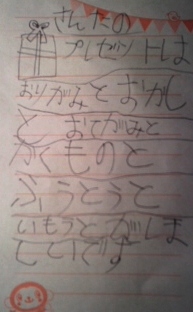 さんたの
プレゼントは
おりがみとおかし
と おてがみと
かくものと
ぶうとうと
いもうとがしま
とといです